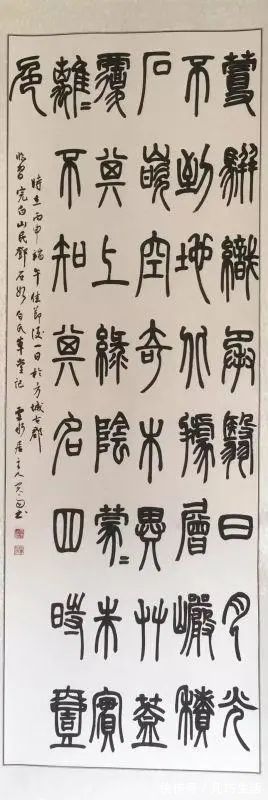 蔓駢織承翳日月光
不到地北據層巖積
石嵌空奇木異艸蓋
覆其上綠陰蒙〻朱實
離〻不知其名四時壹
色
時在丙申端午佳節後一日於方城古郡
臨習完白山民鄧石如白氏草堂記 居主人